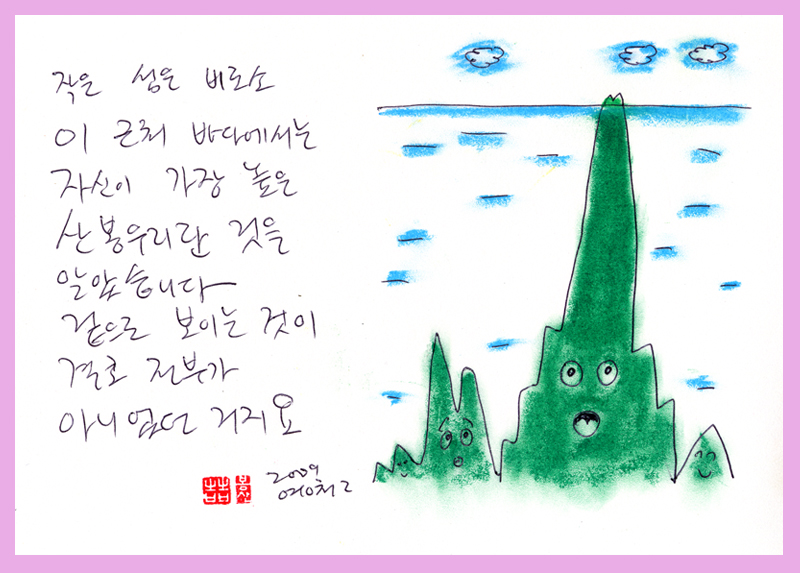 작은 섬은 비로소
이 근처 바다에서는
자신이 가장 높은
산봉우리란 것을
알았습니다
겉으로 보이는 것이
결코 전부가
아니었던 거지요
喆
2009